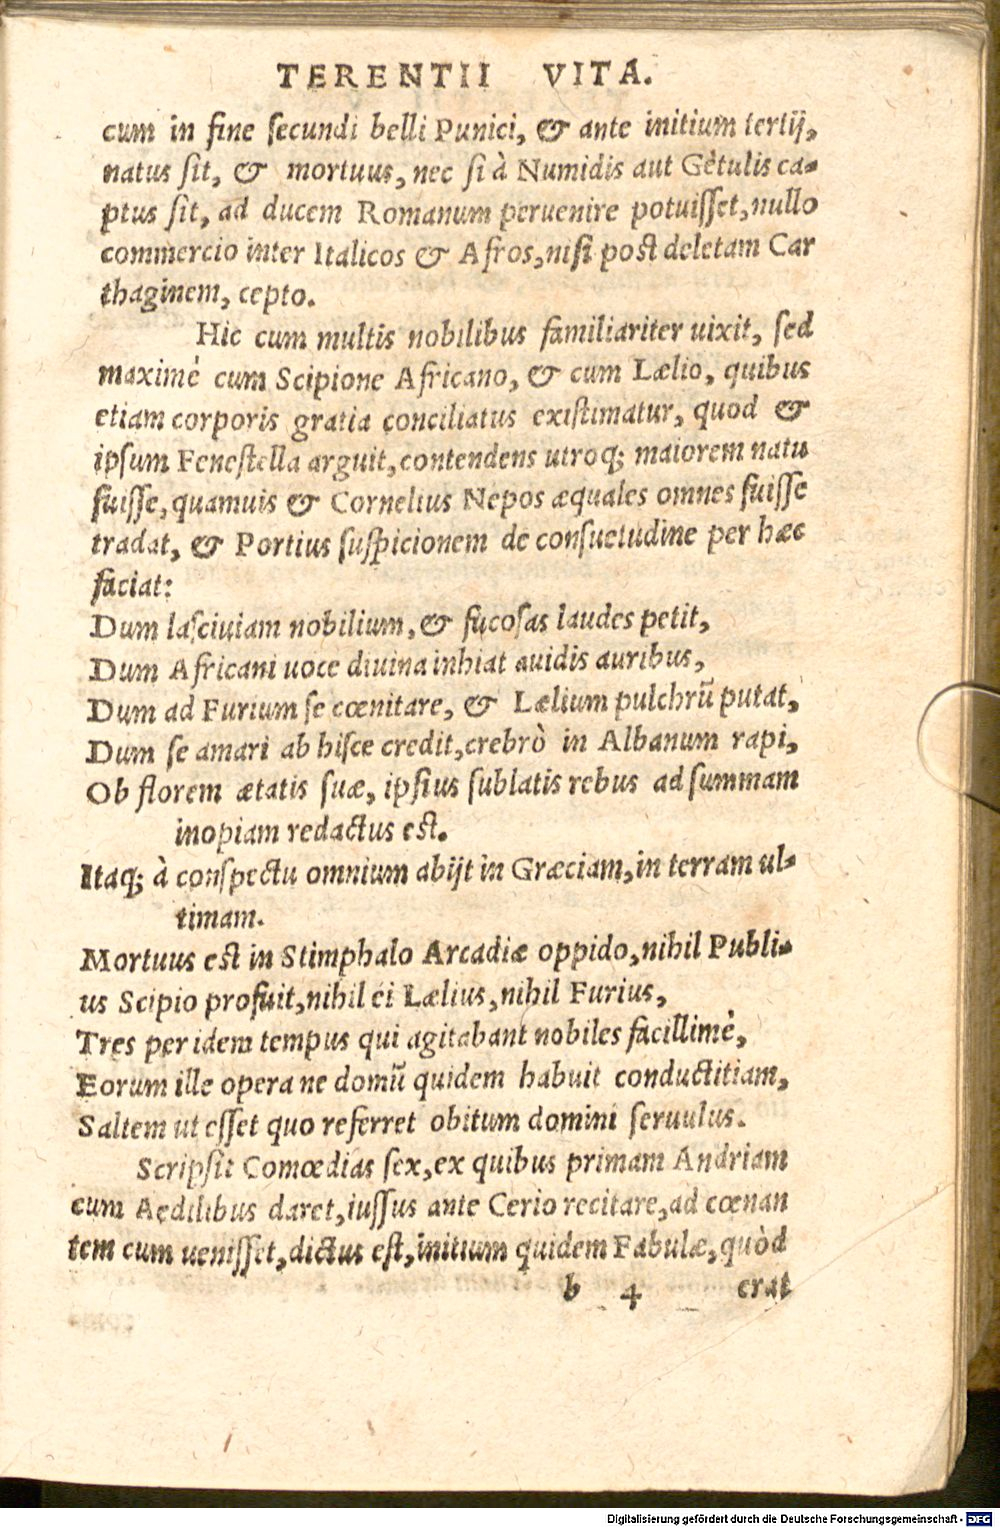 TERENTII VITA.
cum in fine secundi belli Punici, & ante initium tertij,
natus sit, & mortuus, nec si à Numidis aut Gètulis ca-
ptus sit, ad ducem Romanum peruenire potuisset, nullo
commercio inter Italicos & Afros, nisi post deletam Car
thaginem, cepto.
Hic cum multis nobilibus familiariter uixit, sed
maximè cum Scipione Africano, & cum Lælio, quibus
etiam corporis gratia conciliatus existimatur, quod &
ipsum Fenestella arguit, contendens utroq; maiorem natu
fuisse, quamuis & Cornelius Nepos æquales omnes fuisse
tradat, & Portius suspicionem de consuetudine per hæc
faciat:
Dum lasciuiam nobilium, & fucosas laudes petit,
Dum Africani uoce diuina inhiat auidis auribus,
Dum ad Furium se cœnitare, & Lælium pulchrũ putat,
Dum se amari ab hisce credit, crebrò in Albanum rapi,
Ob florem ætatis suæ, ipsius sublatis rebus ad summam
inopiam redactus est.
Itaq; à conspectu omnium abijt in Græciam, in terram ul-
timam.
Mortuus est in Stimphalo Arcadiæ oppido, nihil Publi-
us Scipio profuit, nihil ei Lælius, nihil Furius,
Tres per idem tempus qui agitabant nobiles facillimè,
Eorum ille opera ne domũ quidem habuit conductitiam,
Saltem ut esset quo referret obitum domini seruulus.
Scripsit Comœdias sex, ex quibus primam Andriam
cum Aedilibus daret, iussus ante Cerio recitare, ad cœnan
tem cum uenisset, dictus est, initium quidem Fabulæ, quòd
b 4 erat
Digitalisierung gefördert durch die Deutsche Forschungsgemeinschaft - DFG